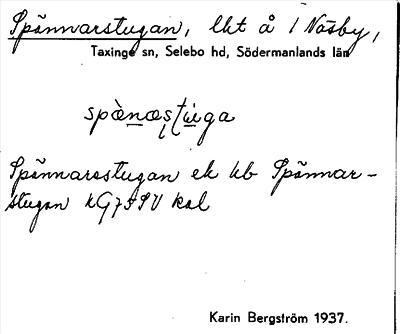 Spånnarstugan, lht å 1 Näsby,
Taxinge sn, Selebo hd, Södermanlands län
spὰnæṣtu̇ga
Spånnarestugan ek kb Spånnar-
stugan kal
Karin Bergström 1937.